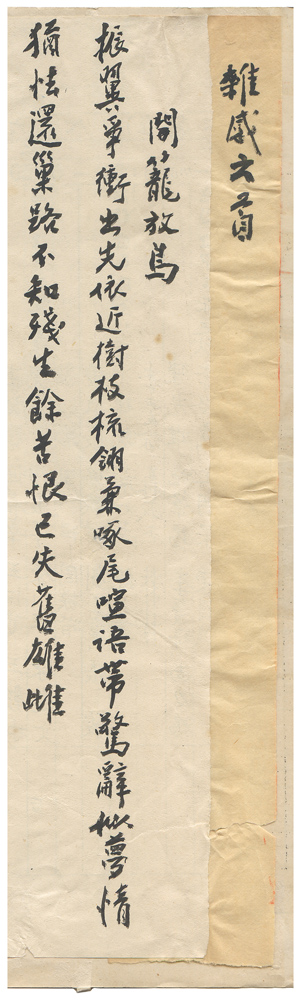 雜感六首
開籠放鳥
振翼爭衝出先依近樹枝梳翎兼啄尾喧語帶驚辭似夢情
猶怯還巢路不知殘生餘苦恨已失舊雄雌